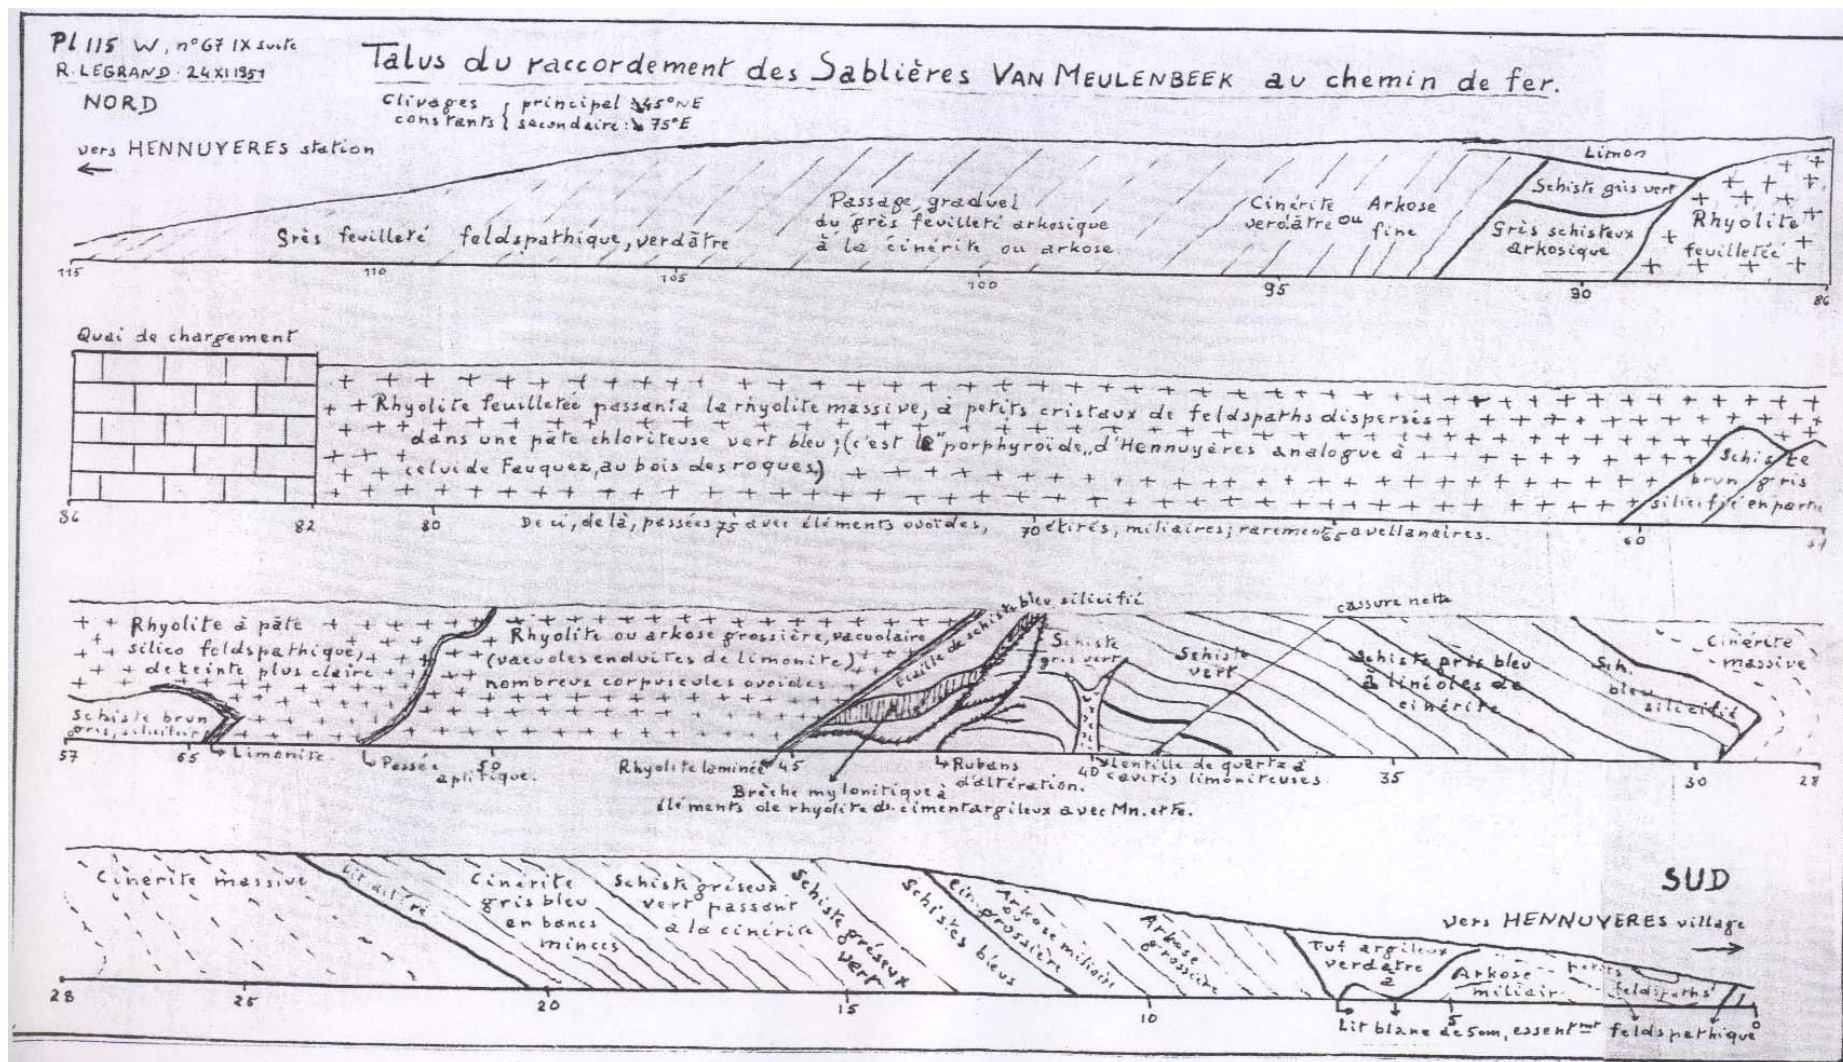 Pl 115 W, n° 67 IX suite
R. LEGRAND. 24 XI 1951
Talus du raccordement des Sablières VAN MEULENBEEK au chemin de fer.
NORD
Clivages constants { principal ↘ 45° NE
secondaire : ↘ 75° E
vers HENNUYERES station
←
Limon
Schiste gris vert
Grès schisteux
arkosique
Rhyolite
feuilletée
Cinérite Arkose
verdâtre ou fine
Passage graduel
du grès feuilleté arkosique
à la cinérite ou arkose
Grès feuilleté feldspathique, verdâtre
115 110 105 100 95 90 86
Quai de chargement
Rhyolite feuilletée passant à la rhyolite massive, à petits cristaux de feldspaths dispersés
dans une pâte chloriteuse vert bleu ; (c'est le "porphyroïde„ d'Hennuyères analogue à
celui de Fauquez, au bois des roques)
Schiste
brun gris
silicifié en partie
86 82 80 75 70 65 60
De ci, de là, passées avec éléments ovoïdes, étirés, miliaires ; rarement avellanaires.
Rhyolite à pâte
silico feldspathique,
de teinte plus claire
Schiste brun
Rhyolite ou arkose grossière, vacuolaire
(vacuoles enduites de limonite)
nombreux corpuscules ovoïdes
Ecaille de schiste bleu silicifié
Schiste
gris vert
Schiste
vert
cassure nette
Schiste gris bleu
à linéoles de
cinérite
Sch.
bleu
silicifié
Cinérite
massive
57 55 50 45 40 35 30 28
Limonite
Passée
aplitique.
Rhyolite laminée
Brèche mylonitique à
éléments de rhyolite ds. ciment argileux avec Mn. et Fe.
Rubans
d'altération.
Lentille de quartz à
cavités limoniteuses.
Cinérite massive
Lit altéré
Cinérite
gris bleu
en bancs
minces
Schiste gréseux
vert passant
à la cinérite
Schiste gréseux
vert
Schistes bleus
Cin. grossière
ou
Arkose miliaire
Arkose
grossière
Tuf argileux
verdâtre
à
Arkose
miliair
petits
feldspaths
SUD
vers HENNUYERES village
→
28 25 20 15 10 5 0
Lit blanc de 5 cm, essentmt feldspathique